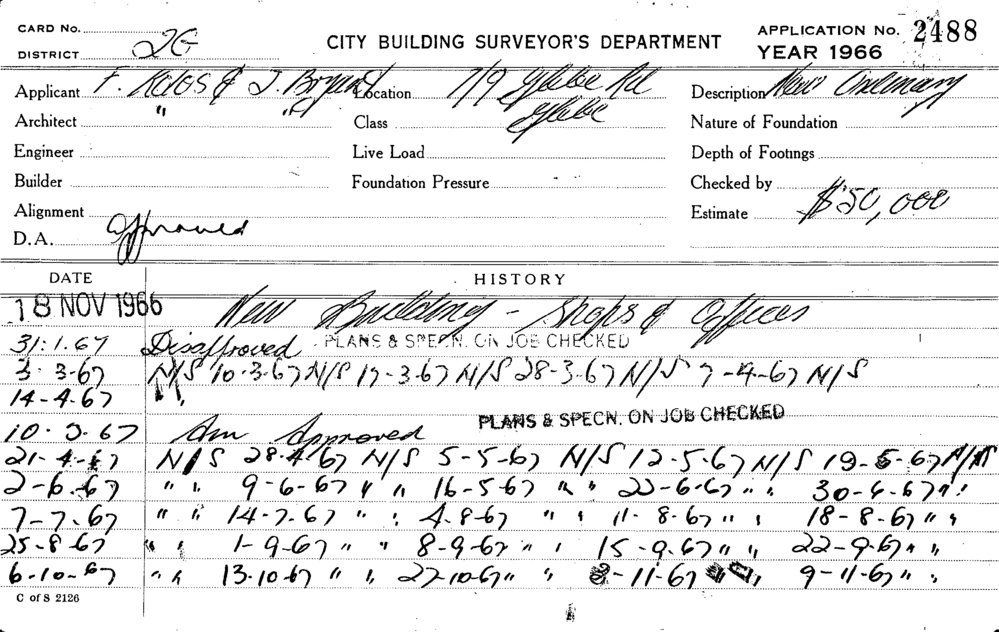 CARD No.
DISTRICT 2G
CITY BUILDING SURVEYOR'S DEPARTMENT
APPLICATION No. 2488
YEAR 1966
Applicant F. & J. Bryant Location 7/9 Glebe Rd Description New Ordinary
Architect " " Class Glebe Nature of Foundation
Engineer Live Load Depth of Footings
Builder Foundation Pressure Checked by
Alignment Estimate $50,000
D.A. Approved
DATE HISTORY
18 NOV 1966 New Building - Shops & Offices
31.1.67 Disapproved PLANS & SPECN. ON JOB CHECKED
3.3.67 N/S 10-3-67 N/S 17-3-67 N/S 28-3-67 N/S 7-4-67 N/S
14-4-67 "
PLANS & SPECN. ON JOB CHECKED
10.3.67 Am Approved
21-4-67 N/S 28.4.67 N/S 5-5-67 N/S 12-5-67 N/S 19-5-67 N/S
2-6-67 " " 9-6-67 " " 16-5-67 " " 23-6-67 " " 30-6-67 " "
7-7-67 " " 14-7-67 " " 4-8-67 " " 11-8-67 " " 18-8-67 " "
25-8-67 " " 1-9-67 " " 8-9-67 " " 15-9-67 " " 22-9-67 " "
6-10-67 " " 13-10-67 " " 27-10-67 " " 3-11-67 " 9-11-67 " "
C of S 2126